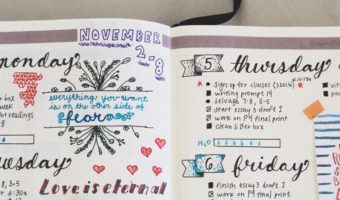 NOVEMBER
2-8
monday
everything you want
is on the other side of
fear
box
week
t readings
8-10
tuesday
, 3-5
Love is eternal
5 thursday
sign up for classes
writing prompt 14
salvage 7-8, 3-5
start essay 3 draft 1
work on P4 final print
clean litter box
H2O
6 friday
finish essay 3 draft 1
work on P4 final print